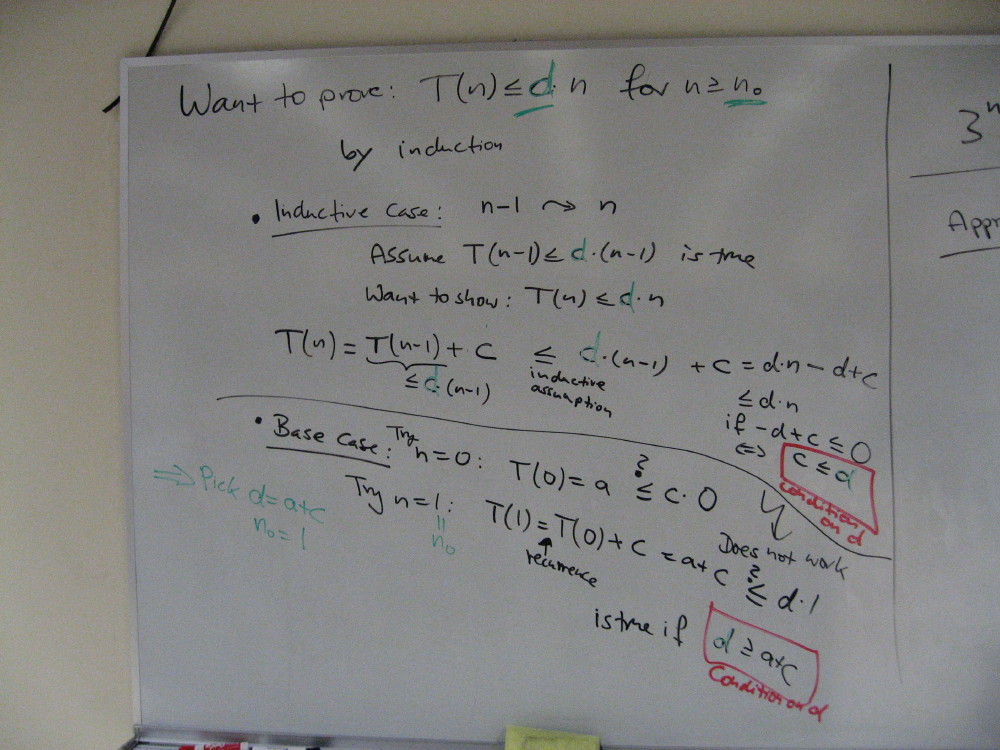 Want to prove: T(n) ≤ d·n for n ≥ n₀
by induction
• Inductive Case: n-1 ⤳ n
Assume T(n-1) ≤ d·(n-1) is true
Want to show: T(n) ≤ d·n
T(n) = T(n-1) + c ≤ d·(n-1) + c = d·n - d+c
≤ d·(n-1)
inductive
assumption
≤ d·n
if -d+c ≤ 0
⇔ c ≤ d
condition
on d
• Base Case: Try n=0: T(0) = a ≤? c·0
Does not work
Try n=1: T(1) = T(0) + c = a+c ≤? d·1
= n₀
recurrence
is true if d ≥ a+c
Condition on d
⇒ Pick d = a+c
n₀ = 1
3ⁿ
Appr